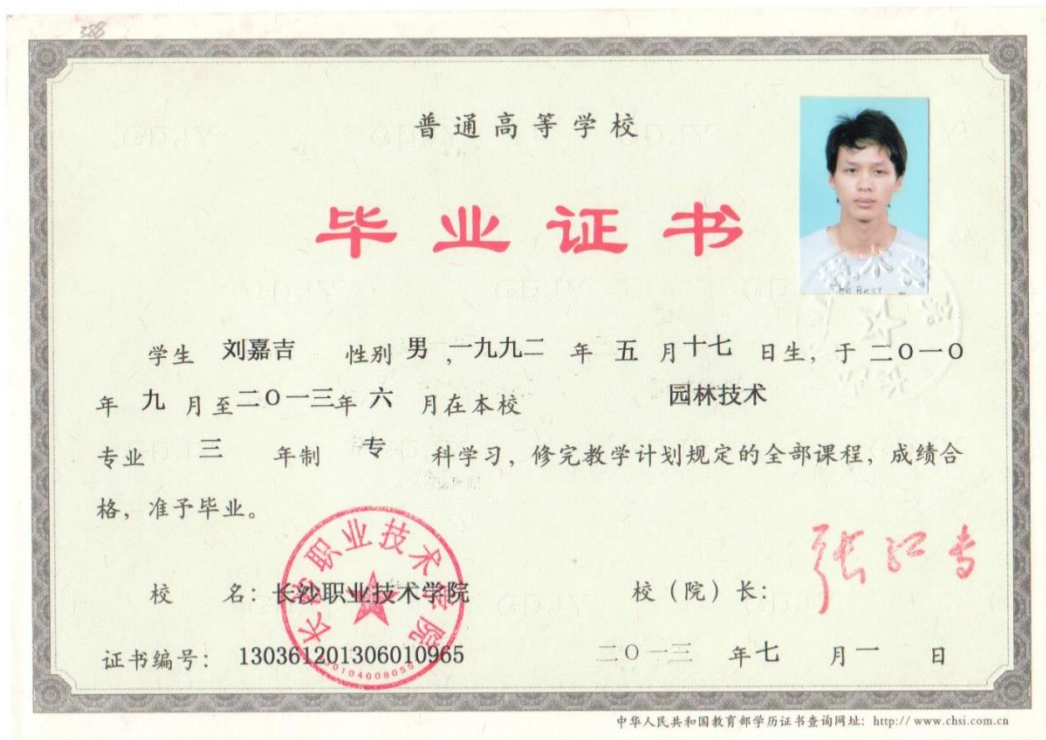 普通高等学校
毕业证书
学生 刘嘉吉 性别 男 ,一九九二 年 五 月十七 日生，于 二〇一〇
年 九 月至二〇一三年 六 月在本校 园林技术
专业 三 年制 专 科学习，修完教学计划规定的全部课程，成绩合
格，准予毕业。
校 名：长沙职业技术学院 校（院）长：
证书编号： 130361201306010965 二〇一三 年七 月一 日
长沙职业技术学院
The Best
中华人民共和国教育部学历证书查询网址：http://www.chsi.com.cn